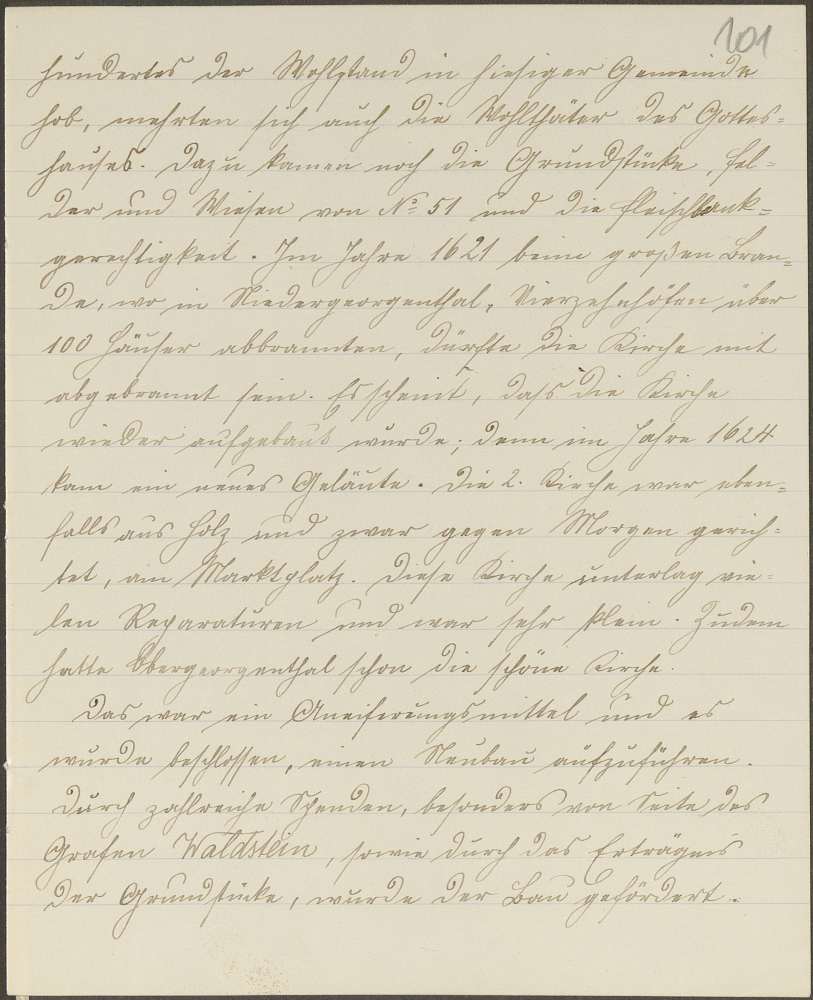 101
hundertes der Wohlstand in hiesiger Gemeinde
hob, mehrten sich auch die Wohlthäter des Gottes=
hauses. Dazu kamen noch die Grundstücke, Fel=
der und Wiesen von No 51 und die Fleischbank=
gerechtigkeit. Im Jahre 1621 beim großen Bran=
de, wo in Niedergeorgenthal, Vierzehnhöfen über
100 Häuser abbrannten, dürfte die Kirche mit
abgebrannt sein. Es scheint, daß die Kirche
wieder aufgebaut wurde; denn im Jahre 1624
kam ein neues Geläute. Die 2. Kirche war eben=
falls aus Holz und zwar gegen Morgen gerich=
tet, am Marktplatz. Diese Kirche unterlag vie=
len Reparaturen und war sehr klein. Zudem
hatte Obergeorgenthal schon die schöne Kirche.
Das war ein Aneiferungsmittel und es
wurde beschlossen, einen Neubau aufzuführen.
Durch zahlreiche Spenden, besonders von Seite des
Grafen Waldstein, sowie durch das Erträgnis
der Grundstücke, wurde der Bau gefördert.